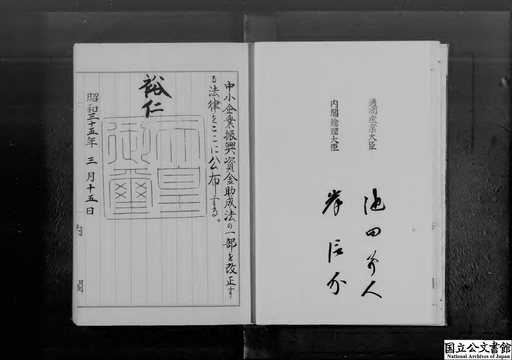 通商産業大臣
池田勇人
内閣総理大臣
岸信介
中小企業振興資金助成法の一部を改正す
る法律をここに公布する。
裕仁
天皇
御璽
昭和三十五年三月十五日
国立公文書館
National Archives of Japan